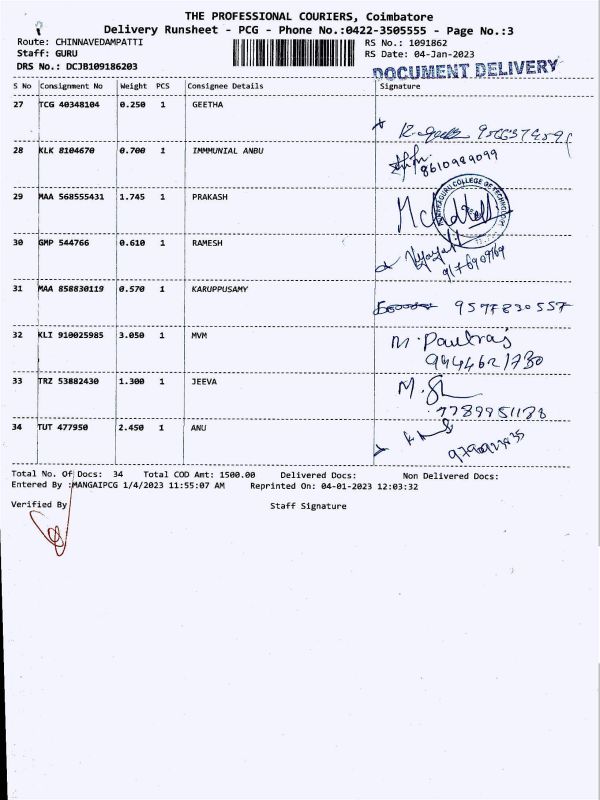 THE PROFESSIONAL COURIERS, Coimbatore
Delivery Runsheet - PCG - Phone No.:0422-3505555 - Page No.:3
Route: CHINNAVEDAMPATTI RS No.: 1091862
Staff: GURU RS Date: 04-Jan-2023
DRS No.: DCJB109186203 DOCUMENT DELIVERY
S No Consignment No Weight PCS Consignee Details Signature
27 TCG 40348104 0.250 1 GEETHA
28 KLK 8104670 0.700 1 IMMMUNIAL ANBU
8610989099
29 MAA 568555431 1.745 1 PRAKASH
COLLEGE OF TECHNOLOGY
30 GMP 544766 0.610 1 RAMESH
31 MAA 858830119 0.570 1 KARUPPUSAMY
9577830557
32 KLI 910025985 3.050 1 MVM
M. Paulraj
33 TRZ 53882430 1.300 1 JEEVA
34 TUT 477950 2.450 1 ANU
Total No. Of Docs: 34 Total COD Amt: 1500.00 Delivered Docs: Non Delivered Docs:
Entered By :MANGAIPCG 1/4/2023 11:55:07 AM Reprinted On: 04-01-2023 12:03:32
Verified By Staff Signature